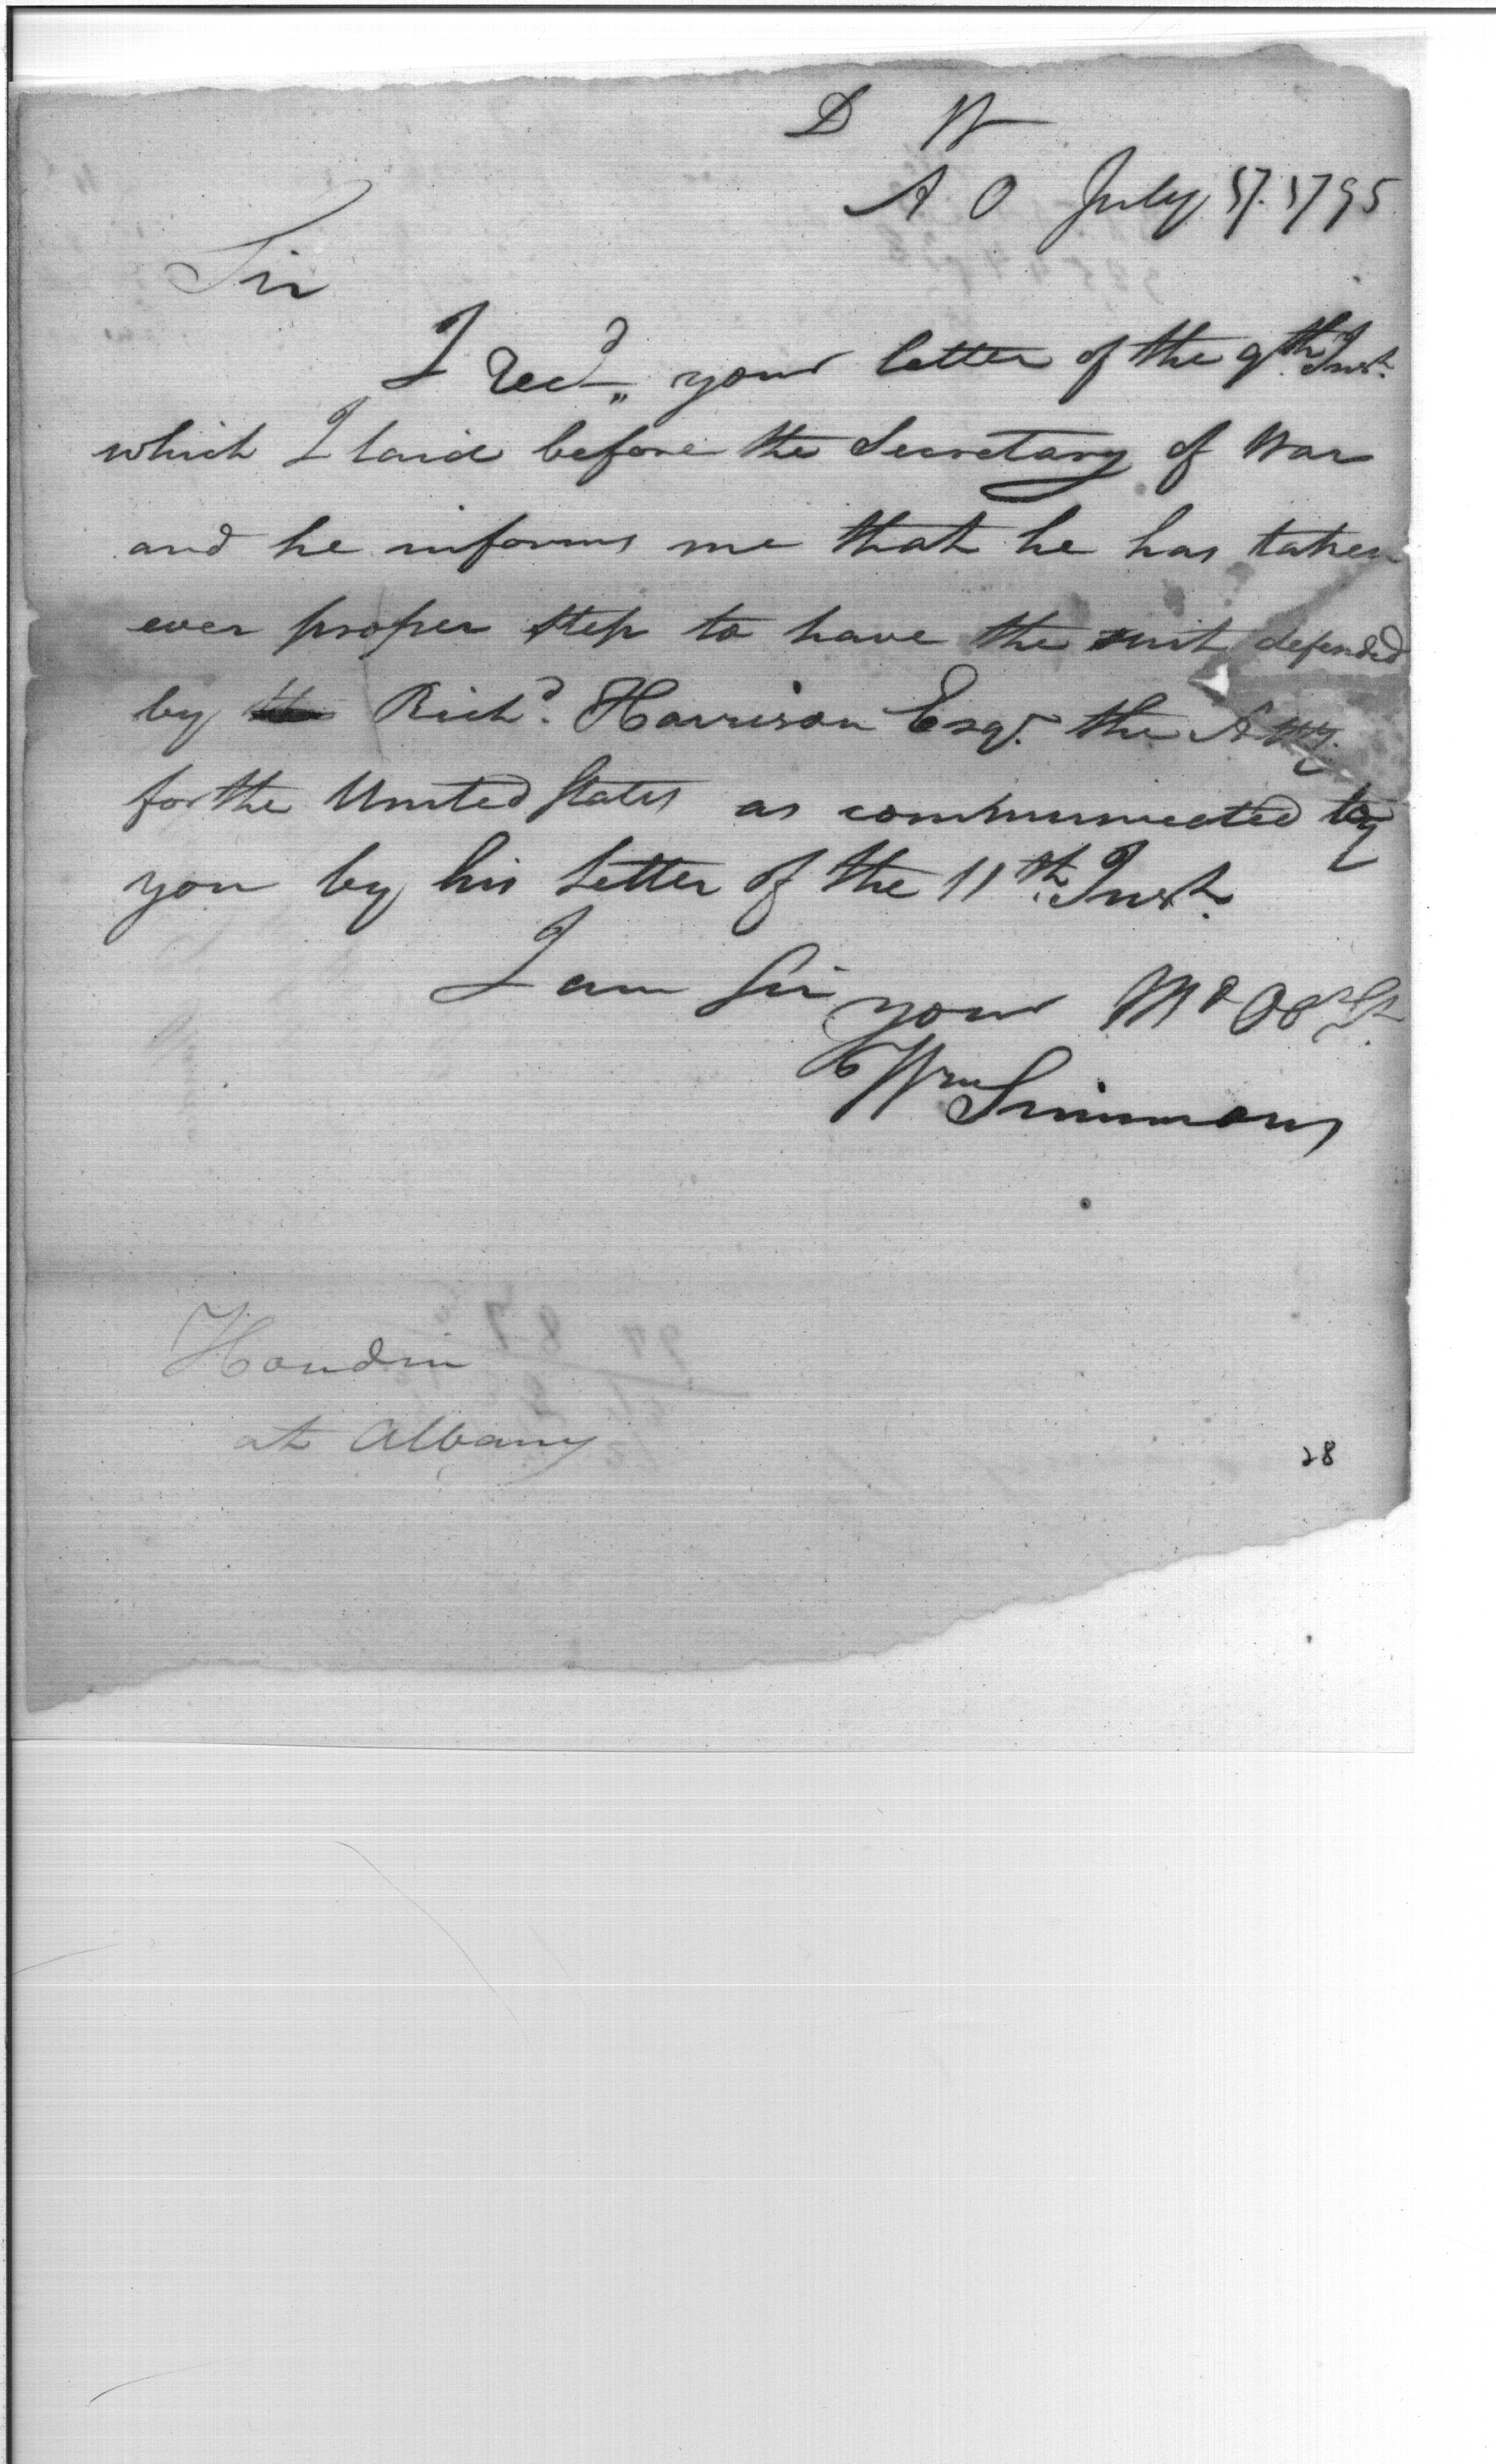 D W
A O July 17. 1795
Sir
I Recd. your letter of the 9th. Inst.
which I laid before the Secretary of War
and he informs me that he has taken
ever proper step to have the suit defended
by Richd. Harrison Esqr. the Atty.
for the United States as communicated to
you by his letter of the 11th. Inst.
I am Sir your Mt Obt St
Wm Simmons
Houdin
at Albany
28